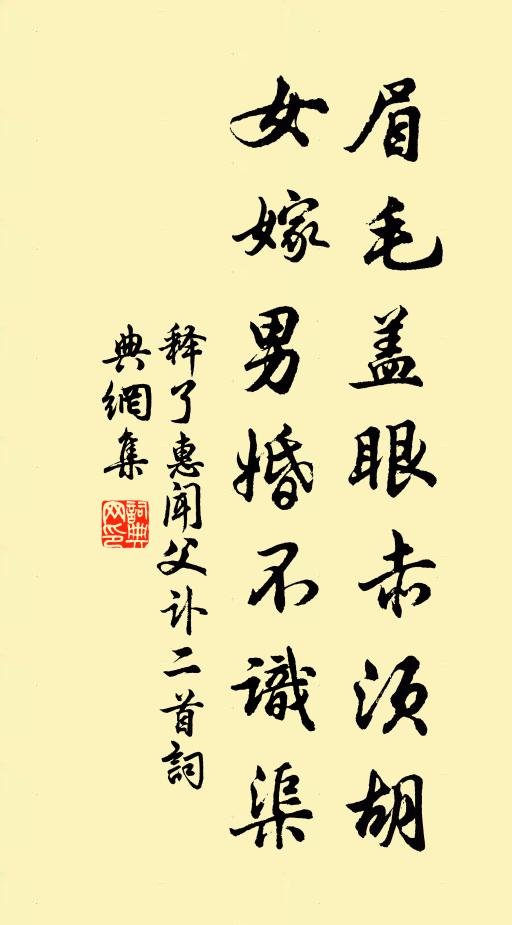 眉毛盖眼赤须胡
女嫁男婚不識渠
释了惠闻父讣二首詞
典網集
詞典网印